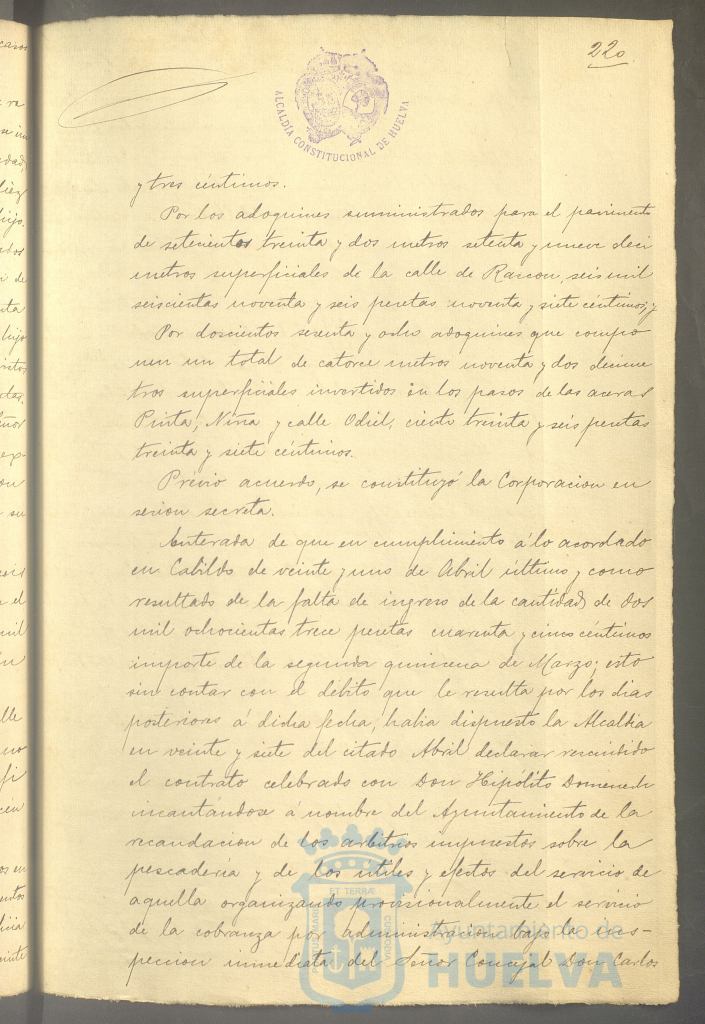 220
ALCALDÍA CONSTITUCIONAL DE HUELVA
y tres céntimos.
Por los adoquines suministrados para el pavimento
de setecientos treinta y dos metros setenta y nueve deci
metros superficiales de la calle de Rascon, seis mil
seiscientas noventa y seis pesetas noventa y siete céntimos; y
Por doscientos sesenta y ocho adoquines que compo
nen un total de catorce metros noventa y dos decime
tros superficiales invertidos en los pasos de las aceras
Pinta, Niña y calle Odiel, ciento treinta y seis pesetas
treinta y siete céntimos.
Prévio acuerdo, se constituyó la Corporacion en
sesion secreta.
Enterada de que en cumplimiento á lo acordado
en Cabildo de veinte y uno de Abril último y como
resultado de la falta de ingreso de la cantidad de dos
mil ochocientas trece pesetas cuarenta y cinco céntimos
importe de la segunda quincena de Marzo; esto
sin contar con el débito que le resulta por los dias
posteriores á dicha fecha, habia dispuesto la Alcaldia
en veinte y siete del citado Abril declarar rescindido
el contrato celebrado con Don Hipólito Domenech
incautándose á nombre del Ayuntamiento de la
recaudacion de los arbitrios impuestos sobre la
pescadería y de los útiles y efectos del servicio de
aquella organizando provisionalmente el servicio
de la cobranza por administracion bajo la ins-
peccion inmediata del Señor Concejal Don Carlos
PORTUS MARIS ET TERRÆ CUSTODIA
Ayuntamiento de
HUELVA